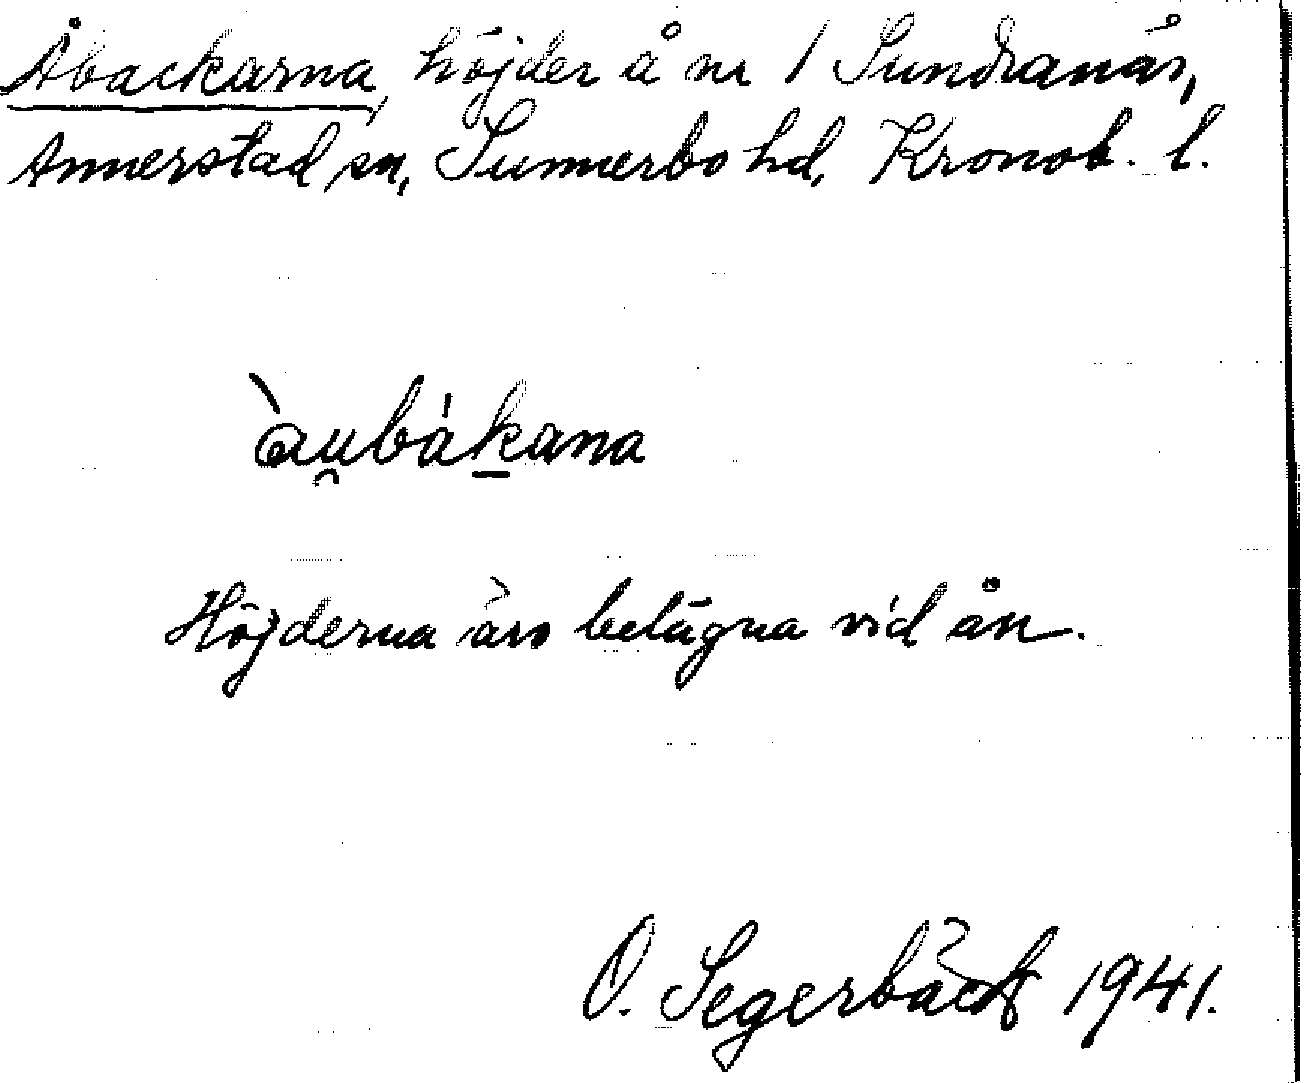 Åbackarna, höjder å nr 1 Sundranäs,
Annerstad sn, Sunnerbo hd, Kronob. l.
àu̯bákana
Höjderna äro belägna vid ån.
O. Segerbäck 1941.